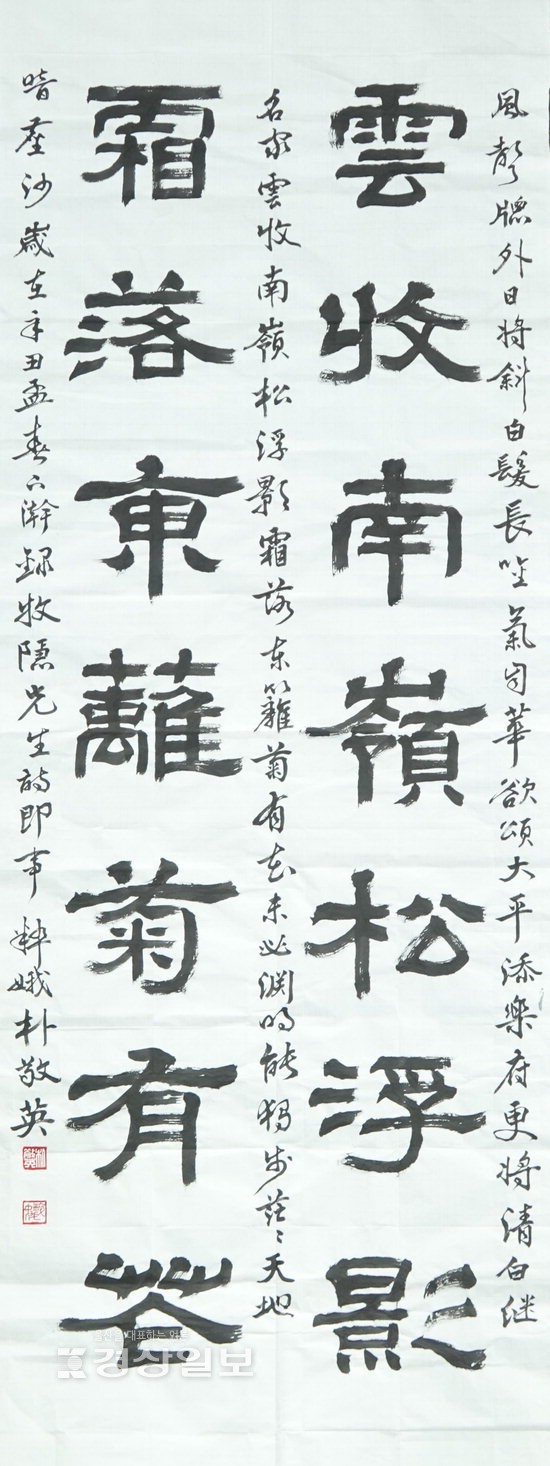 風聲牕外日將斜白髮長唫氣自華欲頌大平添樂府更將清白继
雲收南嶺松浮影
名家雲收南嶺松浮影霜落东籬菊有花未必淵明能獨步茫〻天地
霜落東蘺菊有花
暗塵沙歲在辛丑孟春下澣録牧隱先生詩即事 粹娥朴敬英
대표하는
경상일보